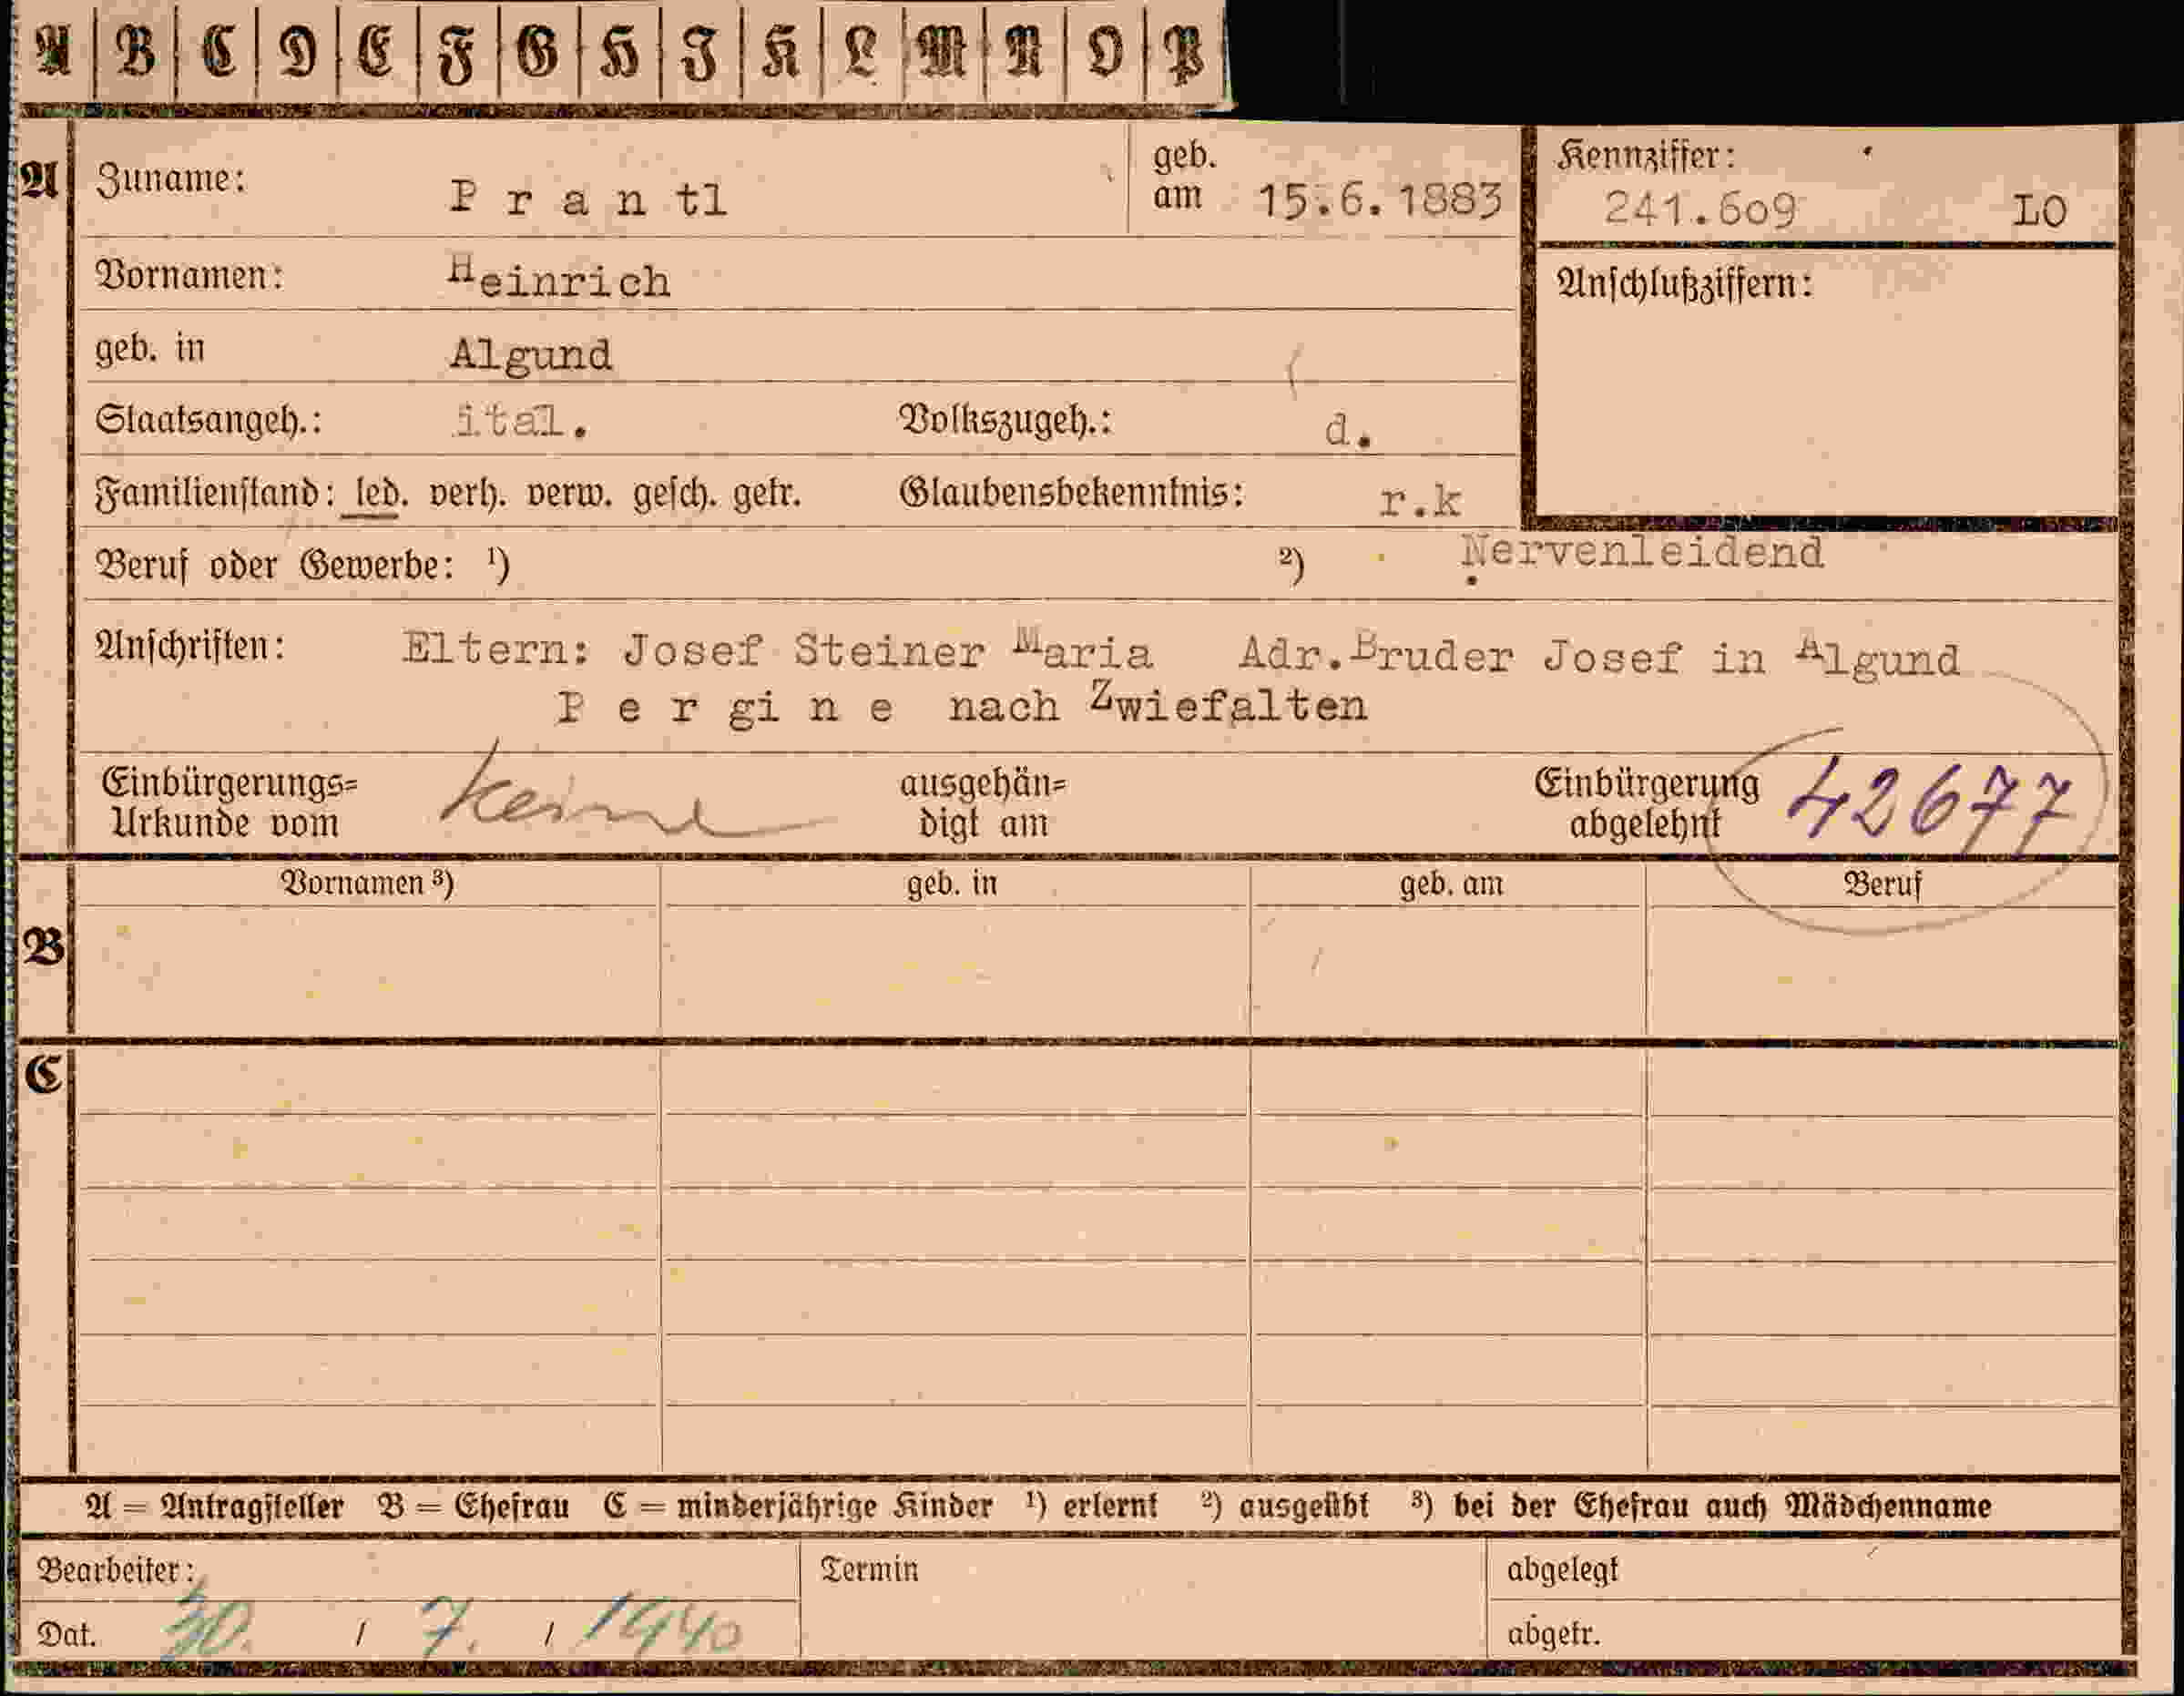 A B C D E F G H J K L M N O P
A Zuname: P r a n tl geb. am 15.6.1883 Kennziffer: 241.6o9 LO
Vornamen: Heinrich Anschlußziffern:
geb. in Algund
Staatsangeh.: ital. Volkszugeh.: d.
Familienstand: led. verh. verw. gesch. getr. Glaubensbekenntnis: r.k
Beruf oder Gewerbe: ¹) ²) Nervenleidend
Anschriften: Eltern: Josef Steiner Maria Adr.Bruder Josef in Algund
P e r gi n e nach Zwiefalten
Einbürgerungs= Urkunde vom keine ausgehän= digt am Einbürgerung abgelehnt 42677
Vornamen ³) geb. in geb. am Beruf
B
C
A = Antragsteller B = Ehefrau C = minderjährige Kinder ¹) erlernt ²) ausgeübt ³) bei der Ehefrau auch Mädchenname
Bearbeiter: Termin abgelegt
Dat. 30. / 7. / 1940 abgetr.